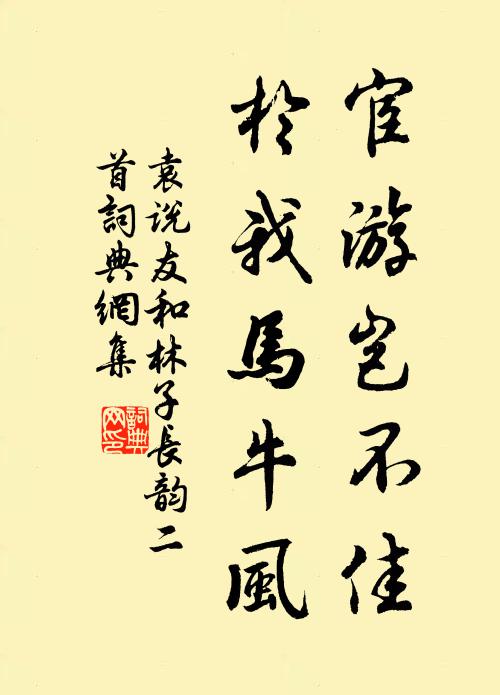 宦游岂不佳
於我馬牛風
袁说友和林子長韵二
首詞典網集
詞典网印